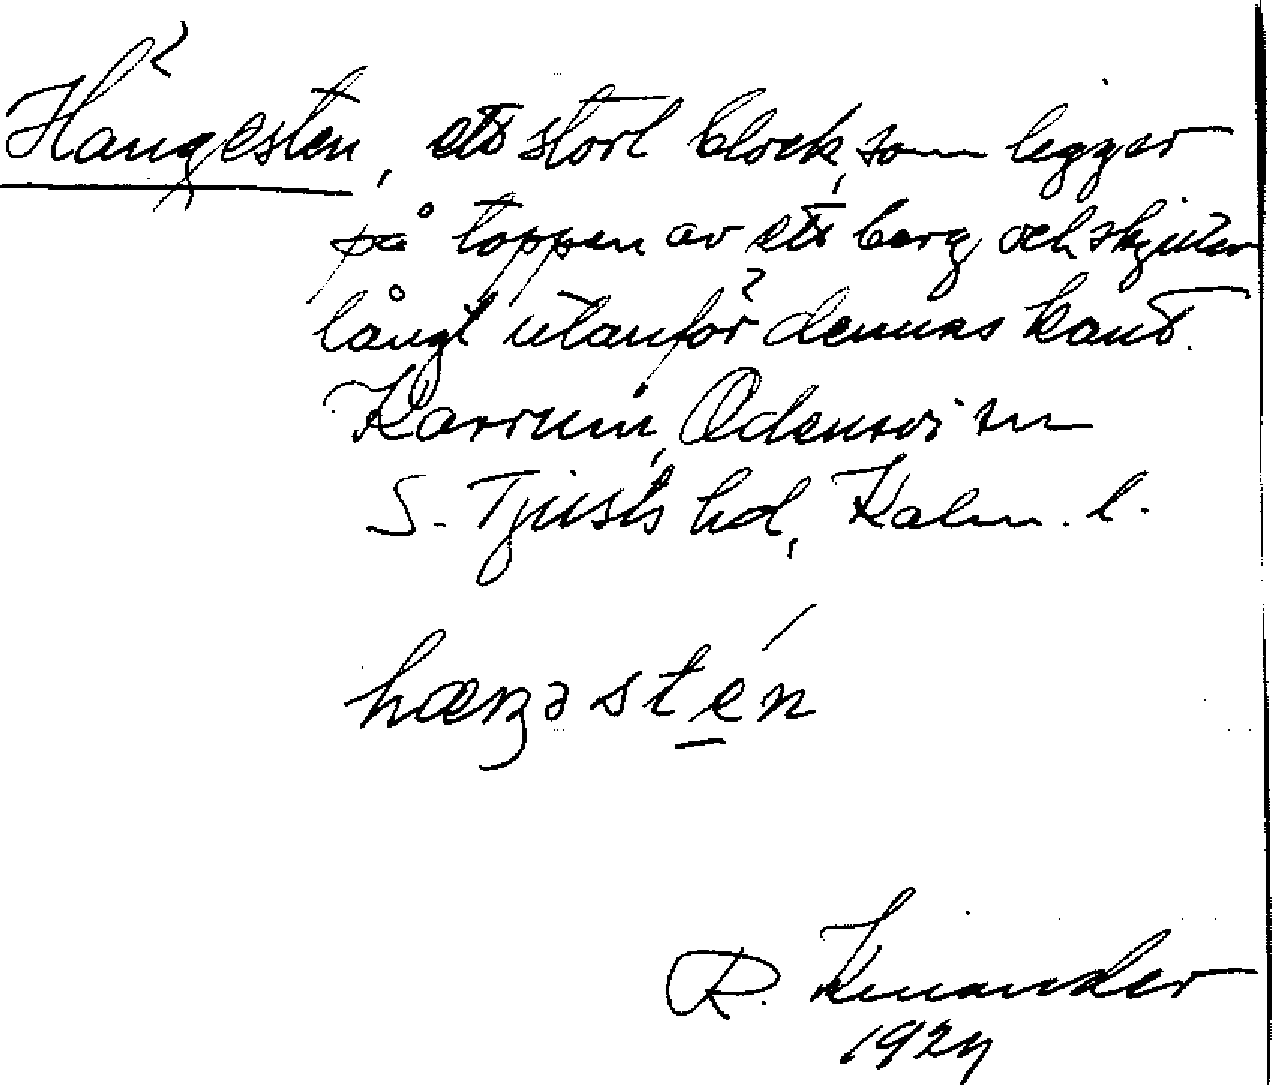 Hängesten, ett stort block, som ligger
på toppen av ett berg och skjuter
långt utanför dennas kant.
Karrum, Odensvi sn
S. Tjusts hd, Kalm. l.
hæŋəstén
R. Kinander
1924